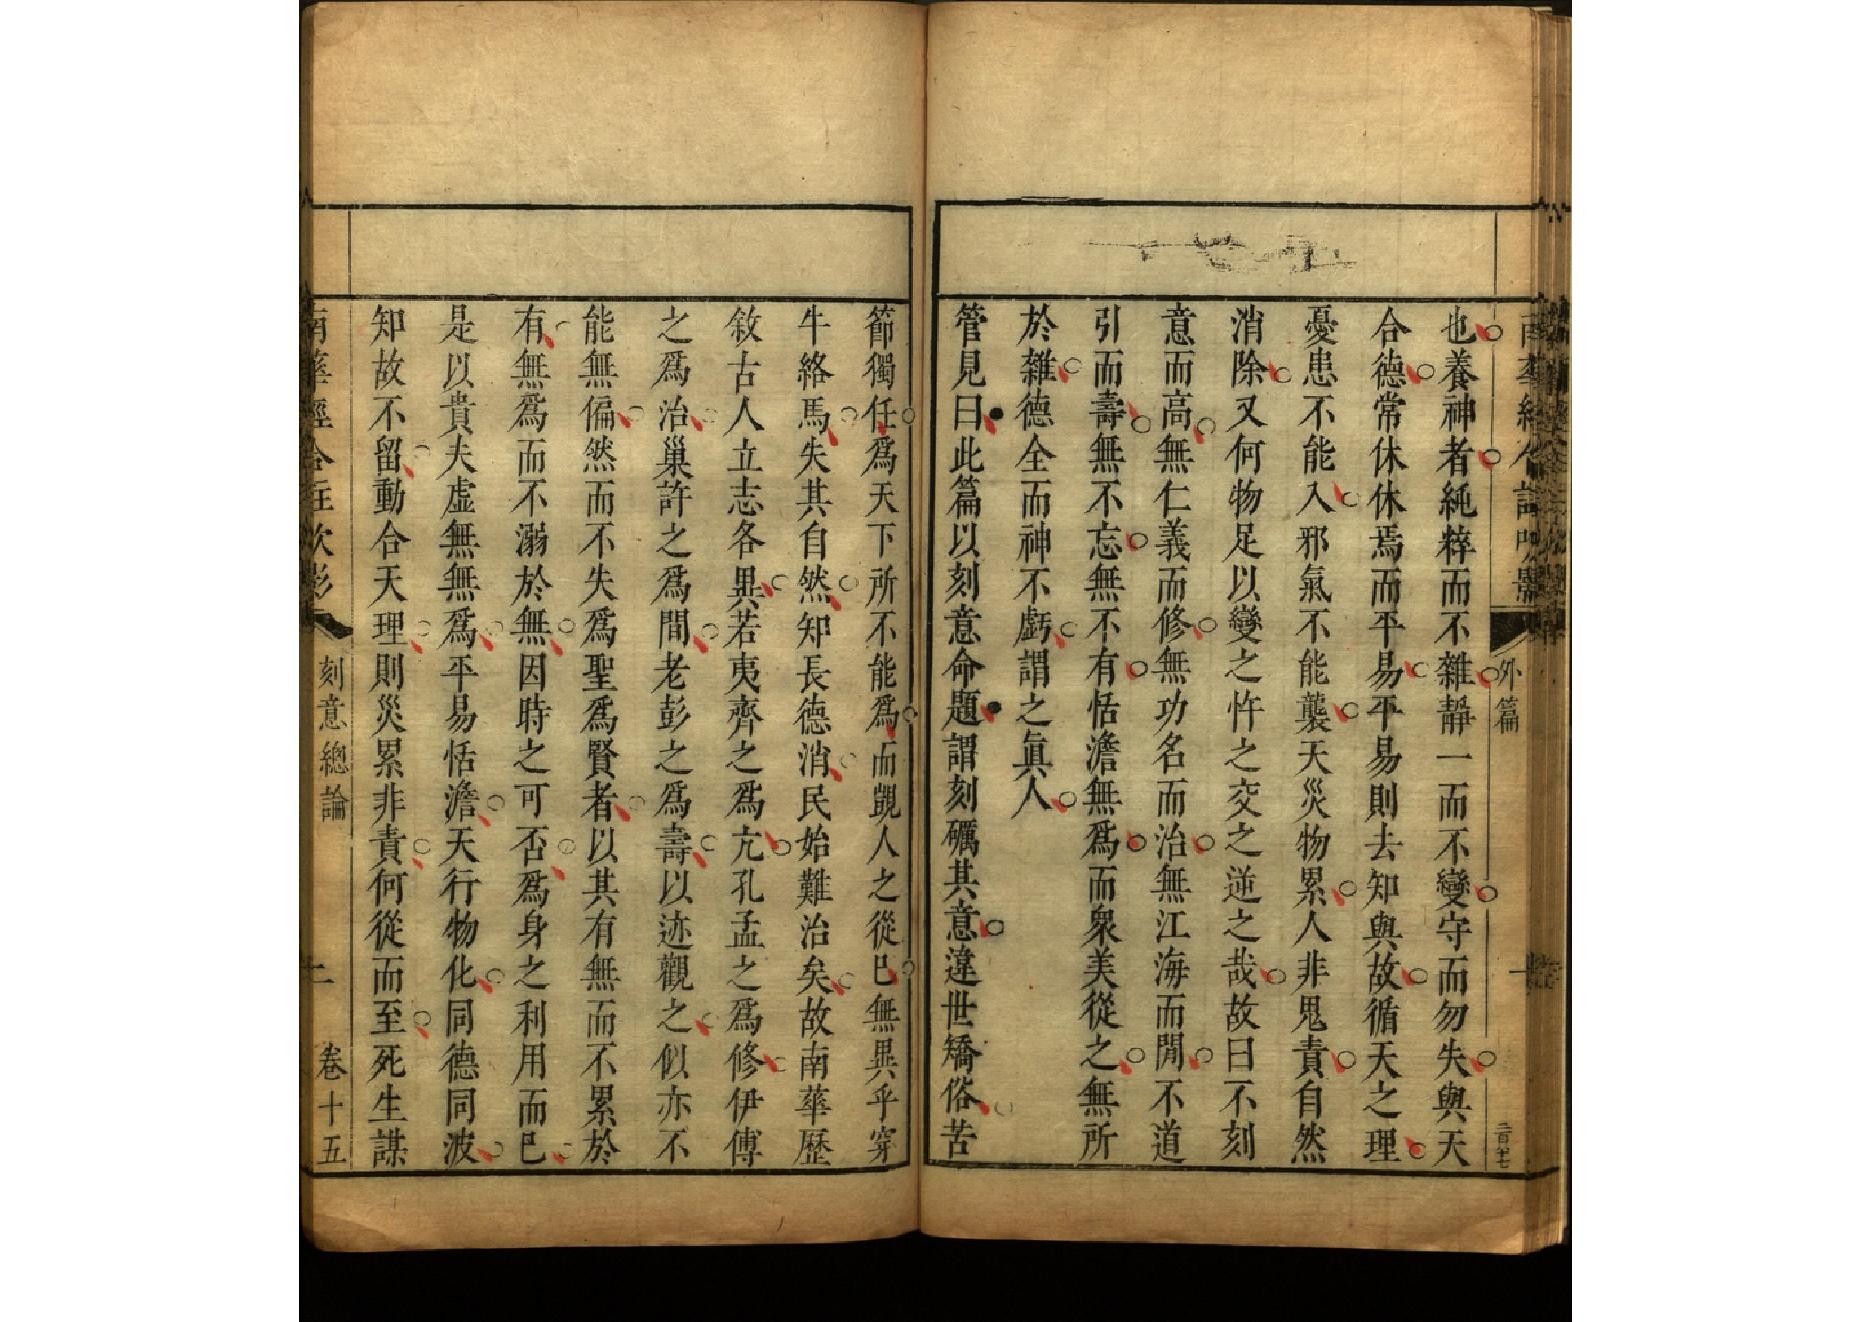 外篇
也養神者純粹而不雜靜一而不變守而勿失與天
合德常休休焉而平易平易則去知與故循天之理
憂患不能入邪氣不能襲天災物累人非鬼責自然
消除又何物足以變之忤之交之逆之哉故曰不刻
意而高無仁義而修無功名而治無江海而閒不道
引而壽無不忘無不有恬澹無爲而衆美從之無所
於雜德全而神不虧謂之眞人
管見曰此篇以刻意命題謂刻礪其意違世矯俗苦
節獨任爲天下所不能爲而覬人之從已無異乎穿
牛絡馬失其自然知長德消民始難治矣故南華歷
敘古人立志各異若夷齊之爲亢孔孟之爲修伊傅
之爲治巢許之爲間老彭之爲壽以迹觀之似亦不
能無偏然而不失爲聖爲賢者以其有無而不累於
有無爲而不溺於無因時之可否爲身之利用而已
是以貴夫虛無無爲平易恬澹天行物化同德同波
知故不留動合天理則災累非責何從而至死生謀
南華經合註吹影 刻意總論 卷十五